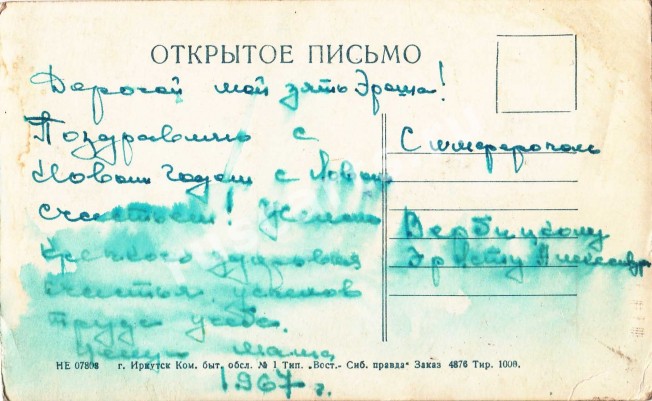 ОТКРЫТОЕ ПИСЬМО
Дорогой мой зять Эраша!
Поздравляю с
Новым Годом с Новым
счастьем! Желаю
крепкого здоровья
счастья, успехов
труде учебе.
мама
1967 г.
Симферополь
Вербицкому
Эрасту
НЕ 07808 г. Иркутск Ком. быт. обсл. № 1 Тип. „Вост.- Сиб. правда“ Заказ 4876 Тир. 1000.